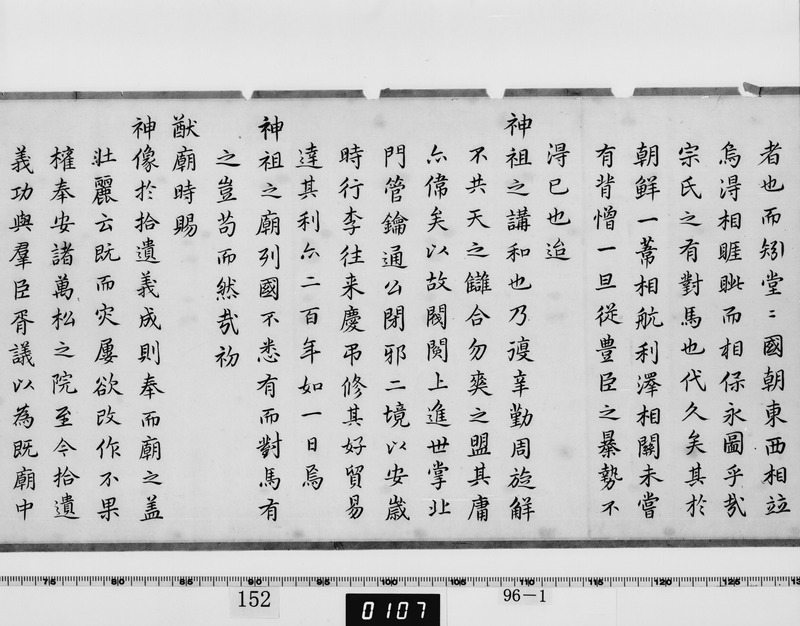 者也而矧堂〻國朝東西相竝
烏淂相睚眦而相保永圖乎哉
宗氏之有對馬也代久矣其於
朝鮮一葦相航利澤相關未嘗
有背憎一旦従豊臣之暴勢不
淂已也迨
神祖之講和也乃復辛勤周旋解
不共天之讎合勿爽之盟其庸
亦偉矣以故閥閲上進世掌北
門管鑰通公閉邪二境以安歳
時行李往来慶弔修其好貿易
達其利亦二百年如一日烏
神祖之廟列國不悉有而對馬有
之豈苟而然哉初
猷廟時賜
神像於拾遺義成則奉而廟之盖
壯麗云既而灾屢欲改作不果
權奉安諸萬松之院至今拾遺
義功與羣臣胥議以為既廟中
75 80 85 90 95 100 105 110 115 120 125 13
152
0107
96-1